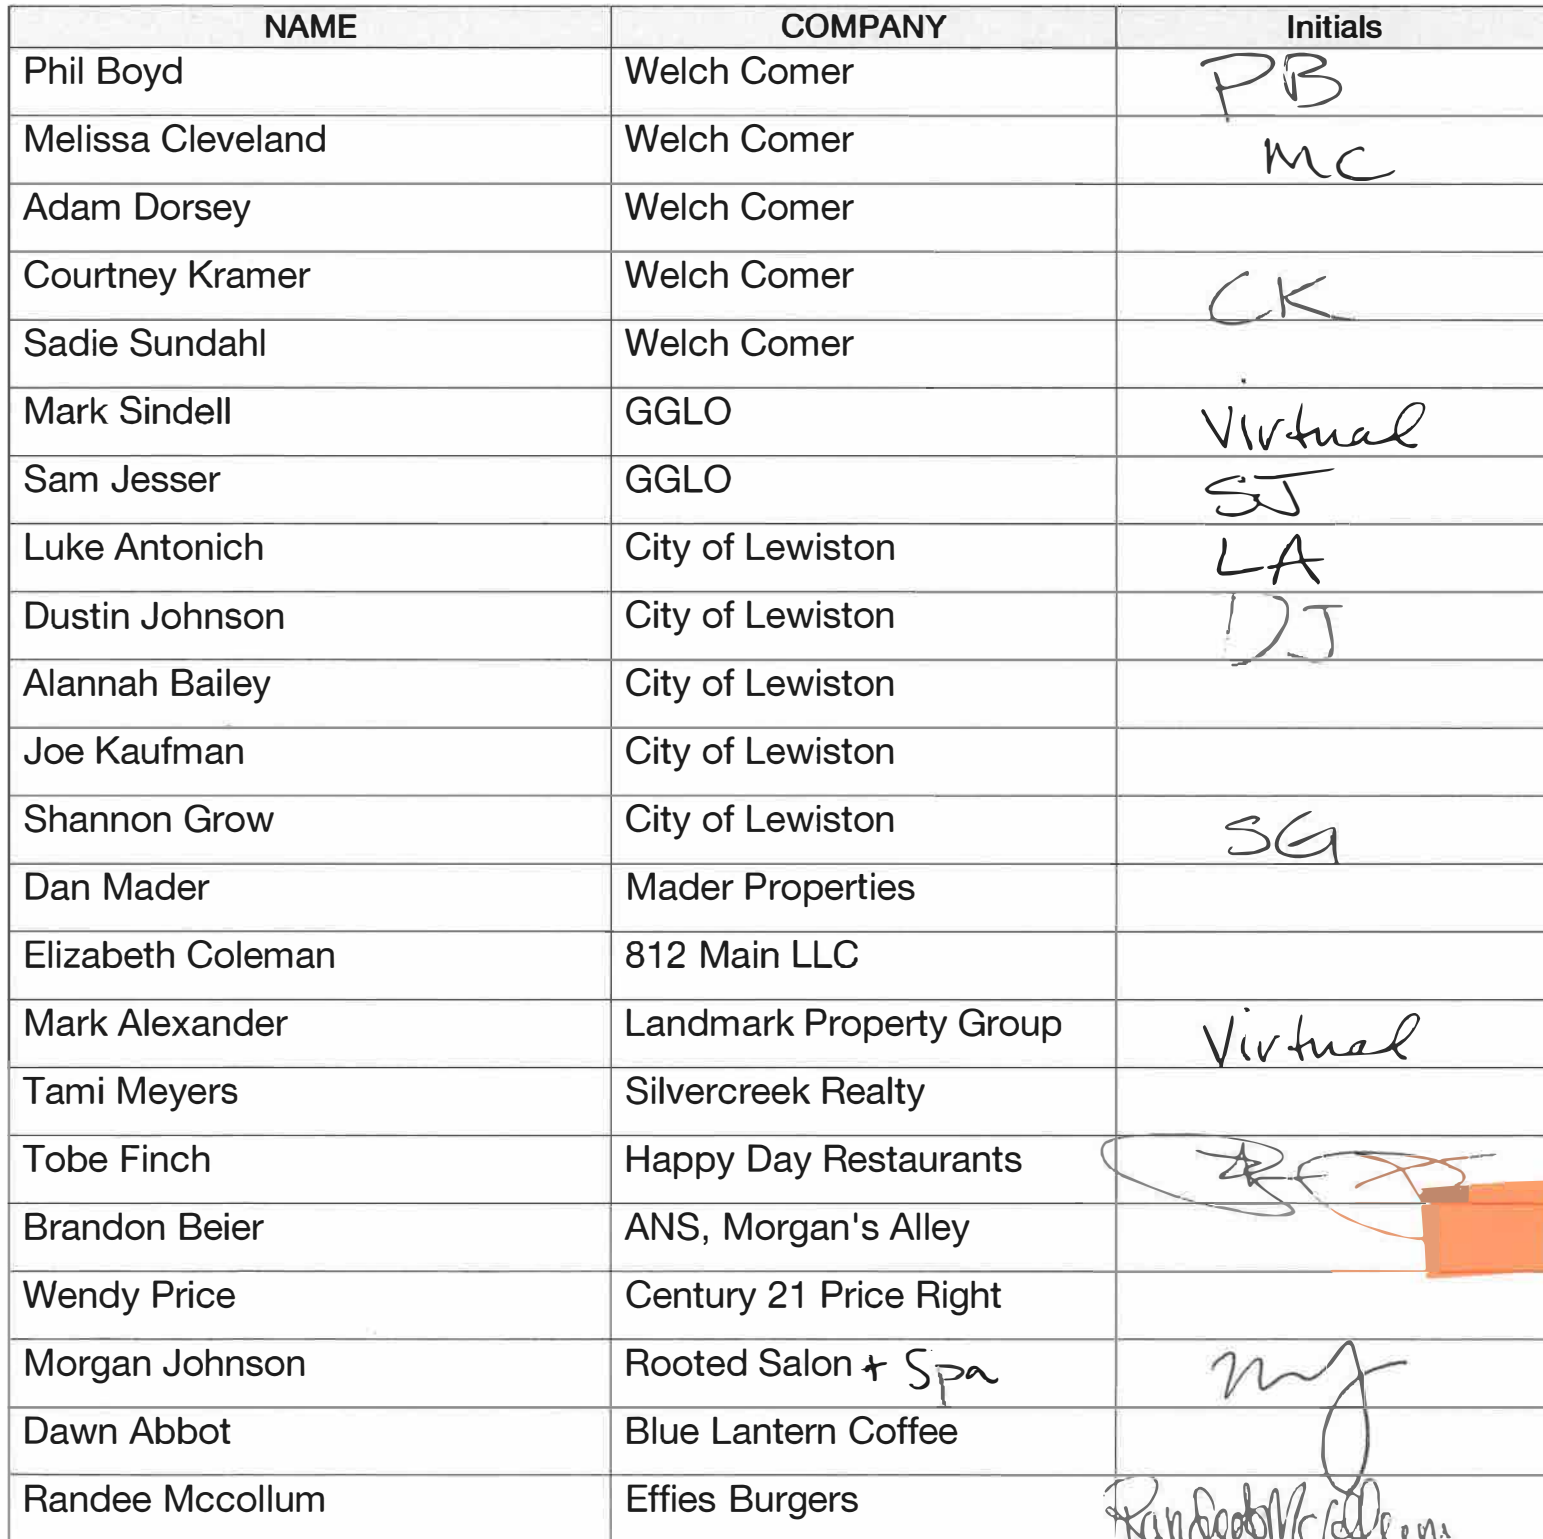 NAME COMPANY Initials
Phil Boyd Welch Comer PB
Melissa Cleveland Welch Comer MC
Adam Dorsey Welch Comer
Courtney Kramer Welch Comer CK
Sadie Sundahl Welch Comer
Mark Sindell GGLO Virtual
Sam Jesser GGLO SJ
Luke Antonich City of Lewiston LA
Dustin Johnson City of Lewiston DJ
Alannah Bailey City of Lewiston
Joe Kaufman City of Lewiston
Shannon Grow City of Lewiston SG
Dan Mader Mader Properties
Elizabeth Coleman 812 Main LLC
Mark Alexander Landmark Property Group Virtual
Tami Meyers Silvercreek Realty
Tobe Finch Happy Day Restaurants
Brandon Beier ANS, Morgan's Alley
Wendy Price Century 21 Price Right
Morgan Johnson Rooted Salon + Spa MJ
Dawn Abbot Blue Lantern Coffee
Randee Mccollum Effies Burgers